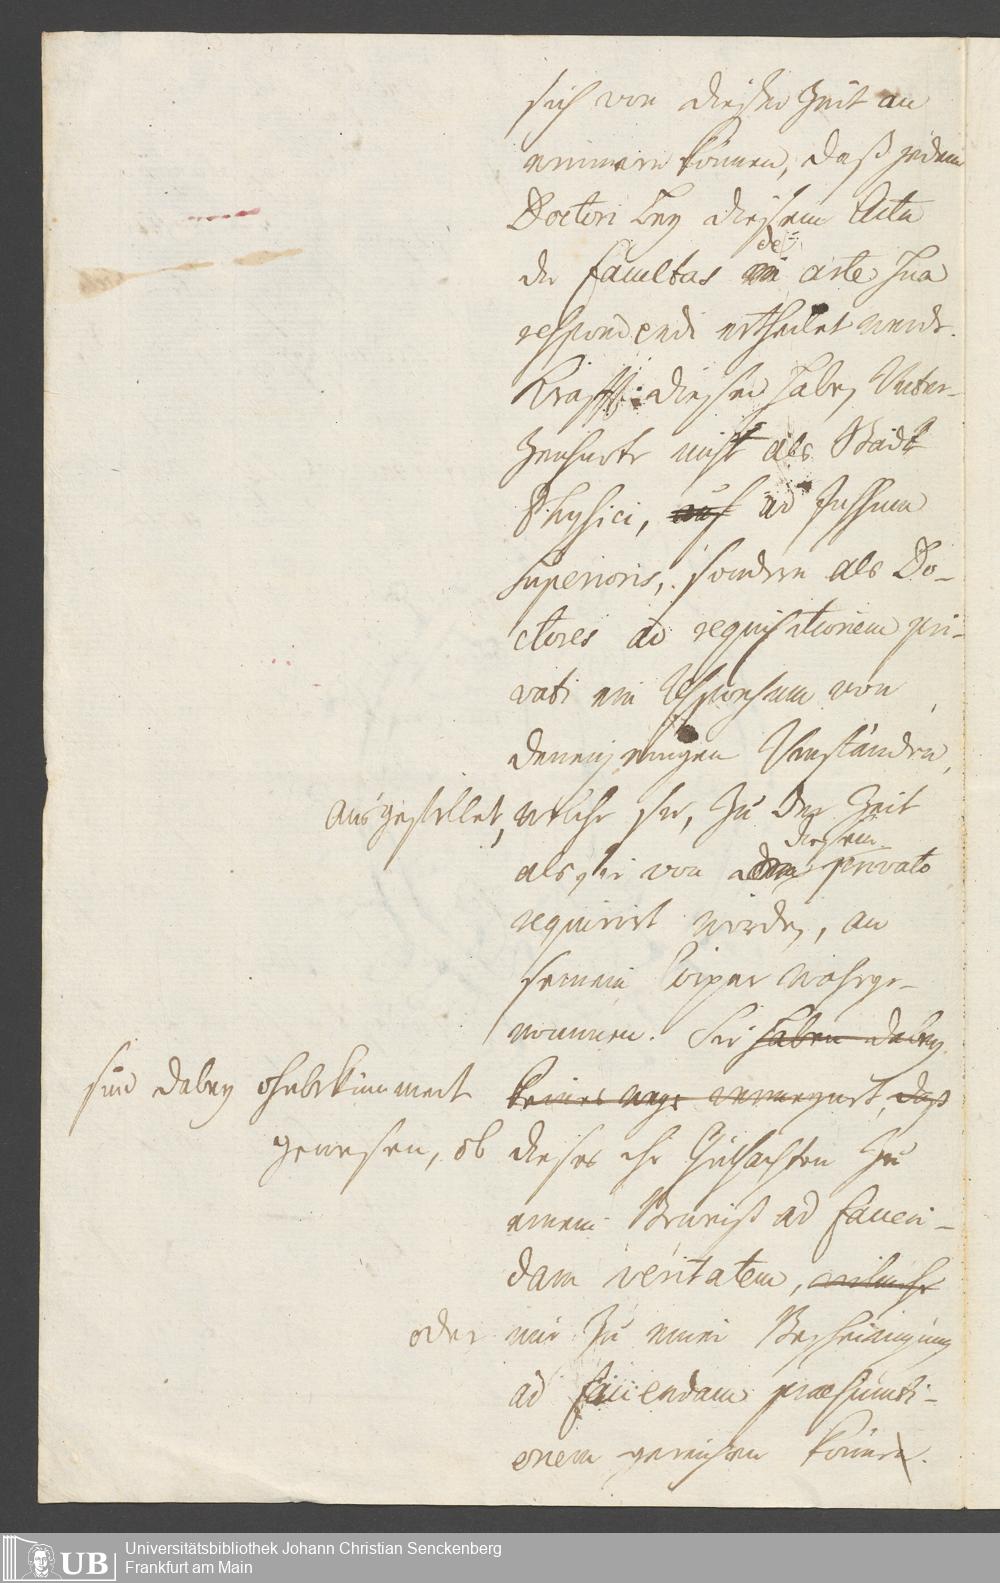 sich von dießer Zeit an
erinnern können, daß jedem
Doctori bey dießem Actu
die facultas de arte sua
respondendi ertheilet werde.
Krafft dießer haben Unter-
Zeichnete nicht als Stadt
Physici, auf ad Jussum
superioris, sondern als Do-
ctores ad requisitionem pri-
vati ein Responsum von
denenjenigen Umständen,
ausgestellet, welche sie, zu der Zeit
als sie von diesem privato
requirirt worden, an
seinem Cörper wahrge-
nommen. Sie haben dabey
sind dabey ohnbekümmert keines wegs vermeynet, daß
gewesen, ob dieses ihr Guthachten zu
einem Beweiß ad facien-
dam veritatem, vielmehr
oder nur zu einer Bescheinigung
ad faciendam praesumti-
onem gereichen könne.
UB
Universitätsbibliothek Johann Christian Senckenberg
Frankfurt am Main